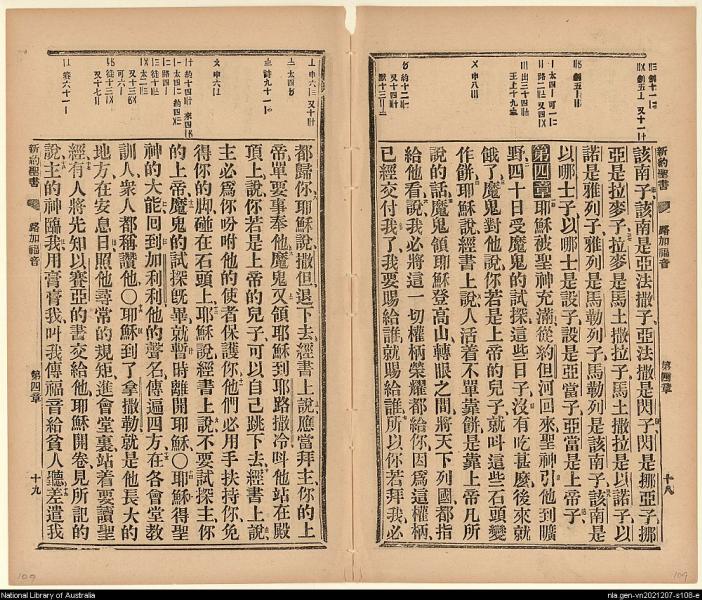 新約聖書
路加福音
第四章
十八
該南子該南是亞法撒子亞法撒是閃子閃是挪亞子挪
亞是拉麥子拉麥是馬土撒拉子馬土撒拉是以諾子以
諾是雅列子雅列是馬勒列子馬勒列是該南子該南是
以哪士子以哪士是設子設是亞當子亞當是上帝子
第四章耶穌被聖神充滿從約但河回來聖神引他到曠
野四十日受魔鬼的試探這些日子沒有吃甚麼後來就
餓了魔鬼對他說你若是上帝的兒子就叫這些石頭變
作餅耶穌說經書上說人活着不單靠餅是靠上帝凡所
說的話魔鬼領耶穌登高山轉眼之間將天下列國都指
給他看說我必將這一切權柄榮耀都給你因爲這權柄
已經交付我了我要賜給誰就賜給誰所以你若拜我必
都歸你耶穌說撒但退下去經書上說應當拜主你的上
帝單要事奉他魔鬼又領耶穌到耶路撒冷呌他站在殿
頂上說你若是上帝的兒子可以自己跳下去經書上說
主必爲你吩咐他的使者保護你他們必用手扶持你免
得你的脚碰在石頭上耶穌說經書上說不要試探主你
的上帝魔鬼的試探旣畢就暫時離開耶穌〇耶穌得聖
神的大能回到加利利他的聲名傳遍四方在各會堂教
訓人衆人都稱讚他〇耶穌到了拿撒勒就是他長大的
地方在安息日照他尋常的規矩進會堂裏站着要讀聖
經有人將先知以賽亞的書交給他耶穌開卷見所記的
說主的神臨我用膏膏我叫我傳福音給貧人聽差遣我
新約聖書
路加福音
第四章
十九
109
109
National Library of Australia
nla.gen-vn2021207-s108-e